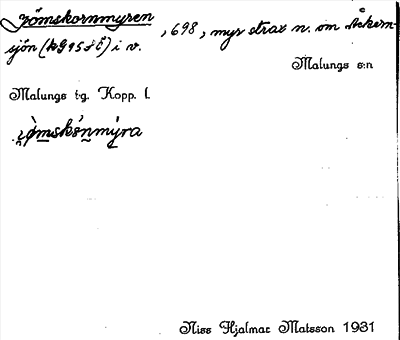 Jömskornmyren, 698, myr strax n. om Åkern-
sjön (kg 95 f E) i v.
Malungs s:n
Malungs t-g. Kopp. l.
Niss Hjalmar Matsson 1931